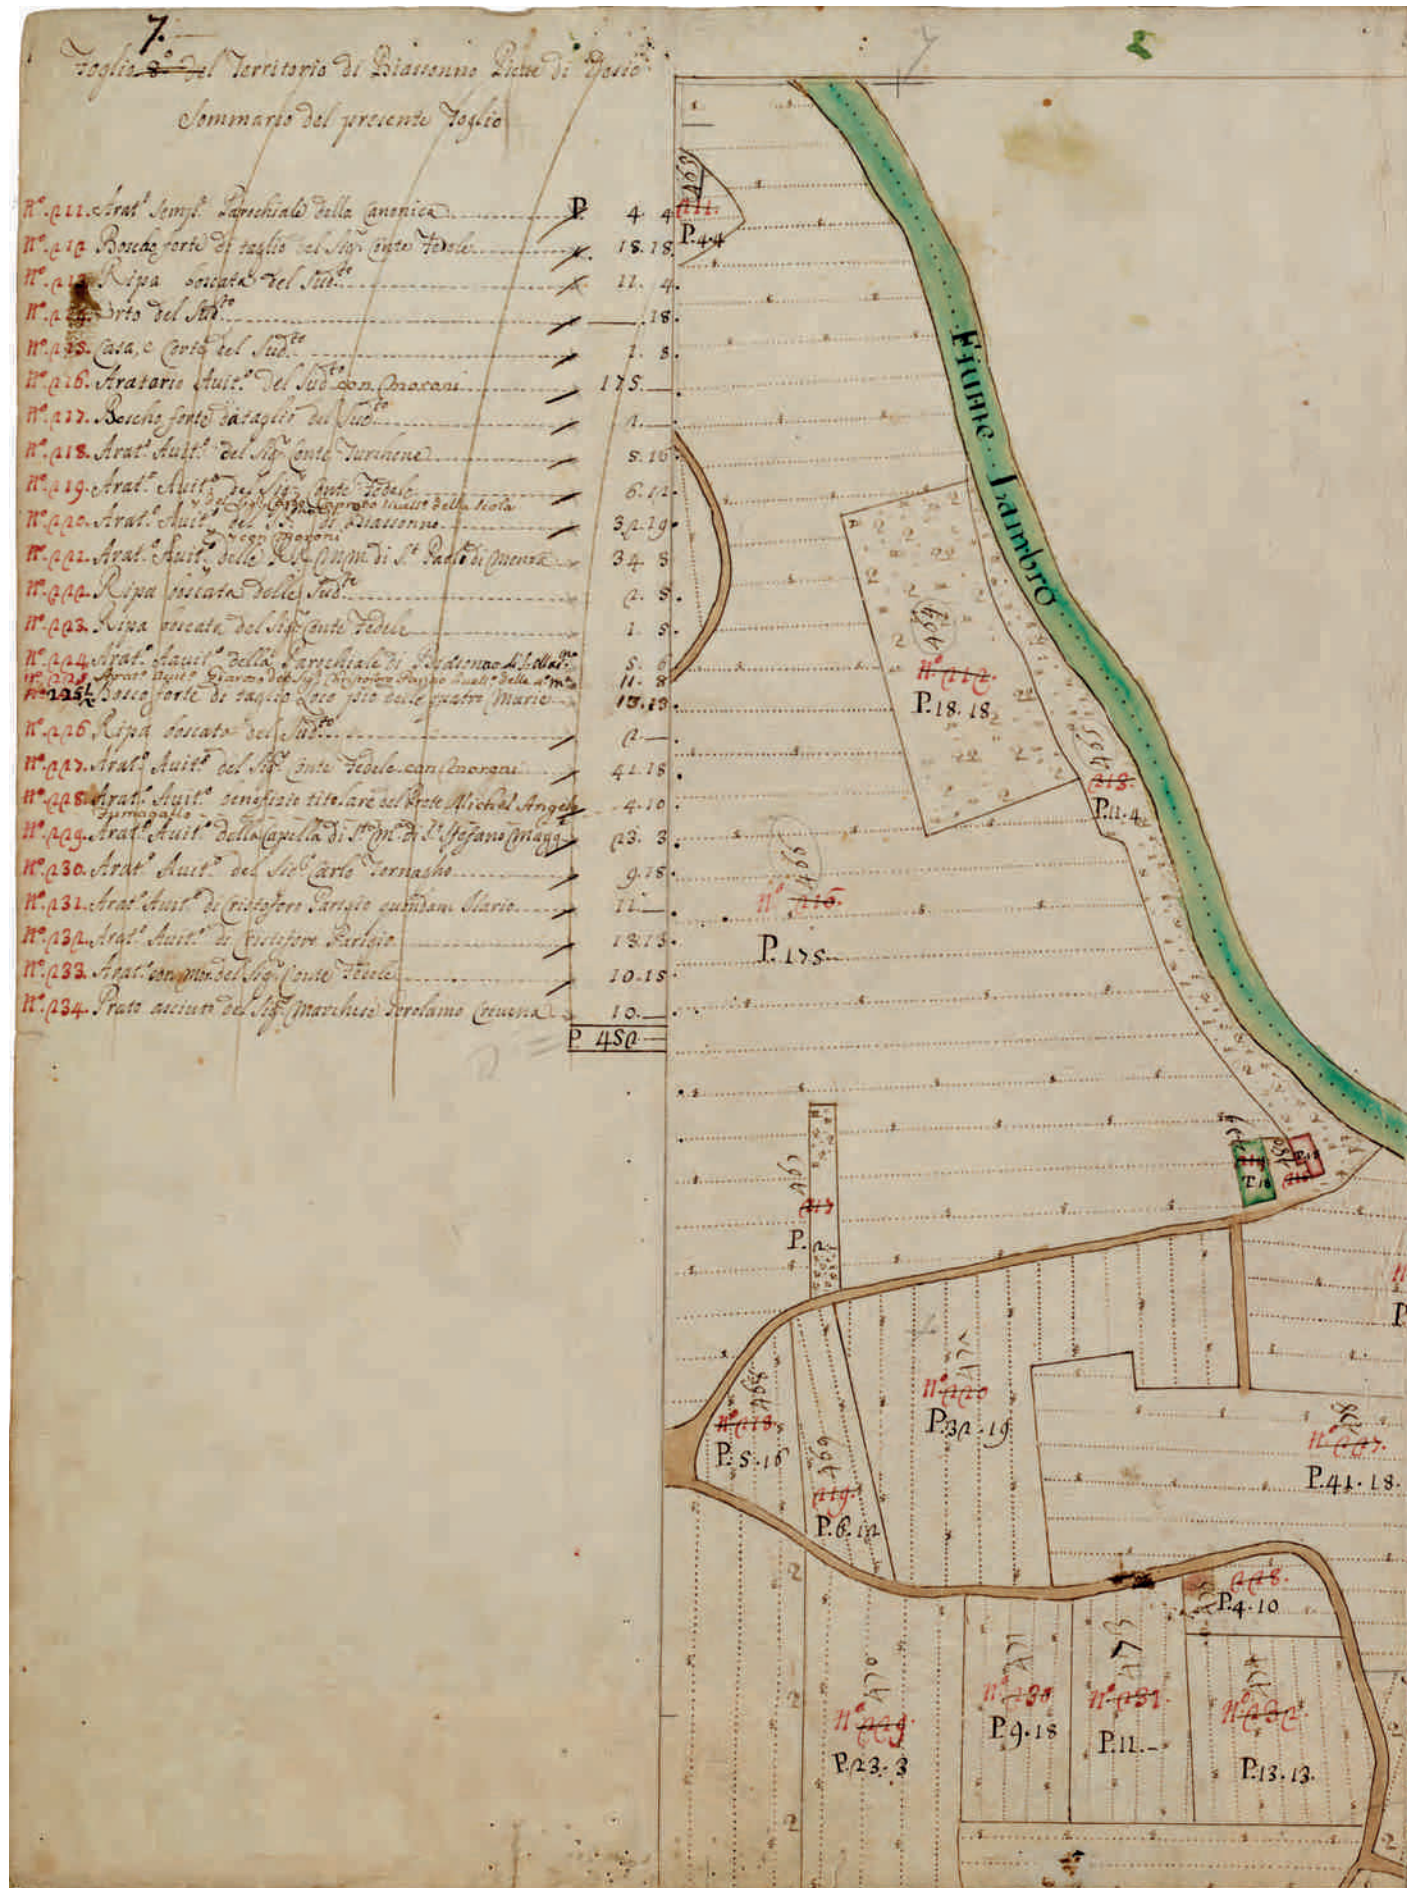 7.
Foglio 8.º del Territorio di Biassonno Pieve di Desio
Sommario del presente Foglio
Nº. 211. Arat.º Semp.e Parochiale della Canonica P. 4. 4
Nº. 212 Boscho forte di taglio del Sig.r Conte Fedele 18. 18
Ripa boscata del Sud.to 11. 4
Orto del Sud.to —. 18
Nº. 215. Casa, e Corte del Sud.to 1. 8
Nº. 216. Aratorio Avit.º del Sud.to con Moroni 175. —
Nº. 217. Boscho forte da taglio del Sud.to 2. —
Nº. 218. Arat.º Avit.º del Sig.r Conte 5. 16
Nº. 219. Arat.º Avit.º del Sig.r Conte Fedele 6. 12
Nº. 220. Arat.º Avit.º del di Biassonno 32. 19
con Moroni
Nº. 221. Arat.º Avit.º delle RR. MM. di S.t Paolo di Monza 34. 8
Nº. 222. Ripa boscata delle Sud.te 2. 5
Nº. 223. Ripa boscata del Sig.r Conte Fedele 1. 5
Nº. 224. Arat.º Avit.º della Parochiale di Biasonno 5. 6
11. 8
225 ½ Bosco forte di taglio Loco pio delle quatro Marie 13. 13
Nº. 226 Ripa boscata del Sud.to 2. —
Nº. 227. Arat.º Avit.º del Sig.r Conte Fedele con Moroni 41. 18
Nº. 228. Arat.º Avit.º benefizio titolare del Prete Michel Angelo 4. 10
Fumagallo
Nº. 229. Arat.º Avit.º della Capella di S.ta M.a di S.t Stefano Magg.e 23. 3
Nº. 230. Arat.º Avit.º del Sig.r Carlo Tornagho 9. 18
Nº. 231. Arat.º Avit.º di Cristoforo Parigio quondam Ilario 11. —
Nº. 232. Arat.º Avit.º di Cristoforo Parigio 13. 13
Nº. 233. Arat.º con mor. del Sig.r Conte Fedele 10. 15
Nº. 234. Prato asciuto del Sig.r Marchese Gerolamo Crevena 10. —
P. 452 —
7
211.
P. 4. 4
Fiume Lambro
Nº. 212.
P. 18. 18
213.
P. 11. 4
466
Nº 216.
P. 175 —
463
217
P. 2
214
P. 18
215
468
Nº 218.
P. 5. 16
469
219.
P. 6. 12
472
Nº 220
P. 32. 19
Nº 227.
P. 41. 18.
228.
P. 4. 10
470
Nº 229.
P. 23. 3
471
Nº 230
P. 9. 18
473
Nº 231.
P. 11. —
474
Nº 232.
P. 13. 13.